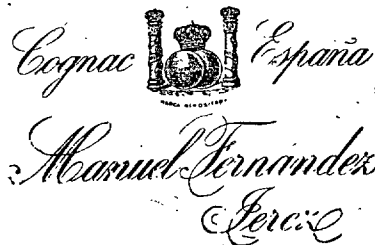 Cognac España
MARCA DEPOSITADA
Manuel Fernández
Jerez